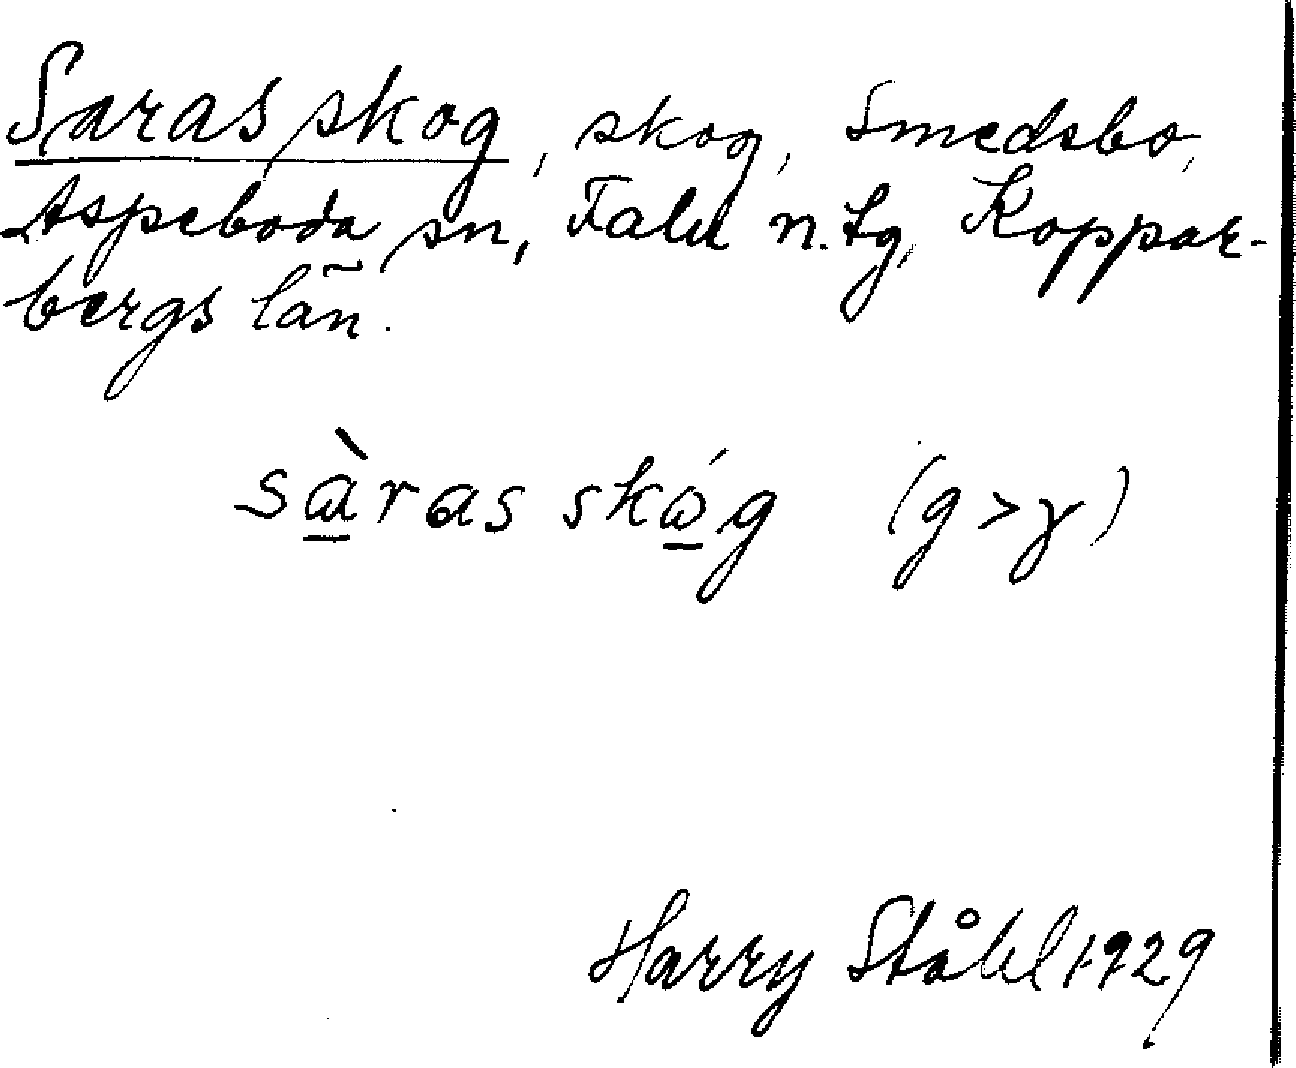 Saras skog, skog, Smedsbo,
Aspeboda sn, Falu n. tg, Koppar-
bergs län.
sàras skóg (g > γ)
Harry Ståhl 1929